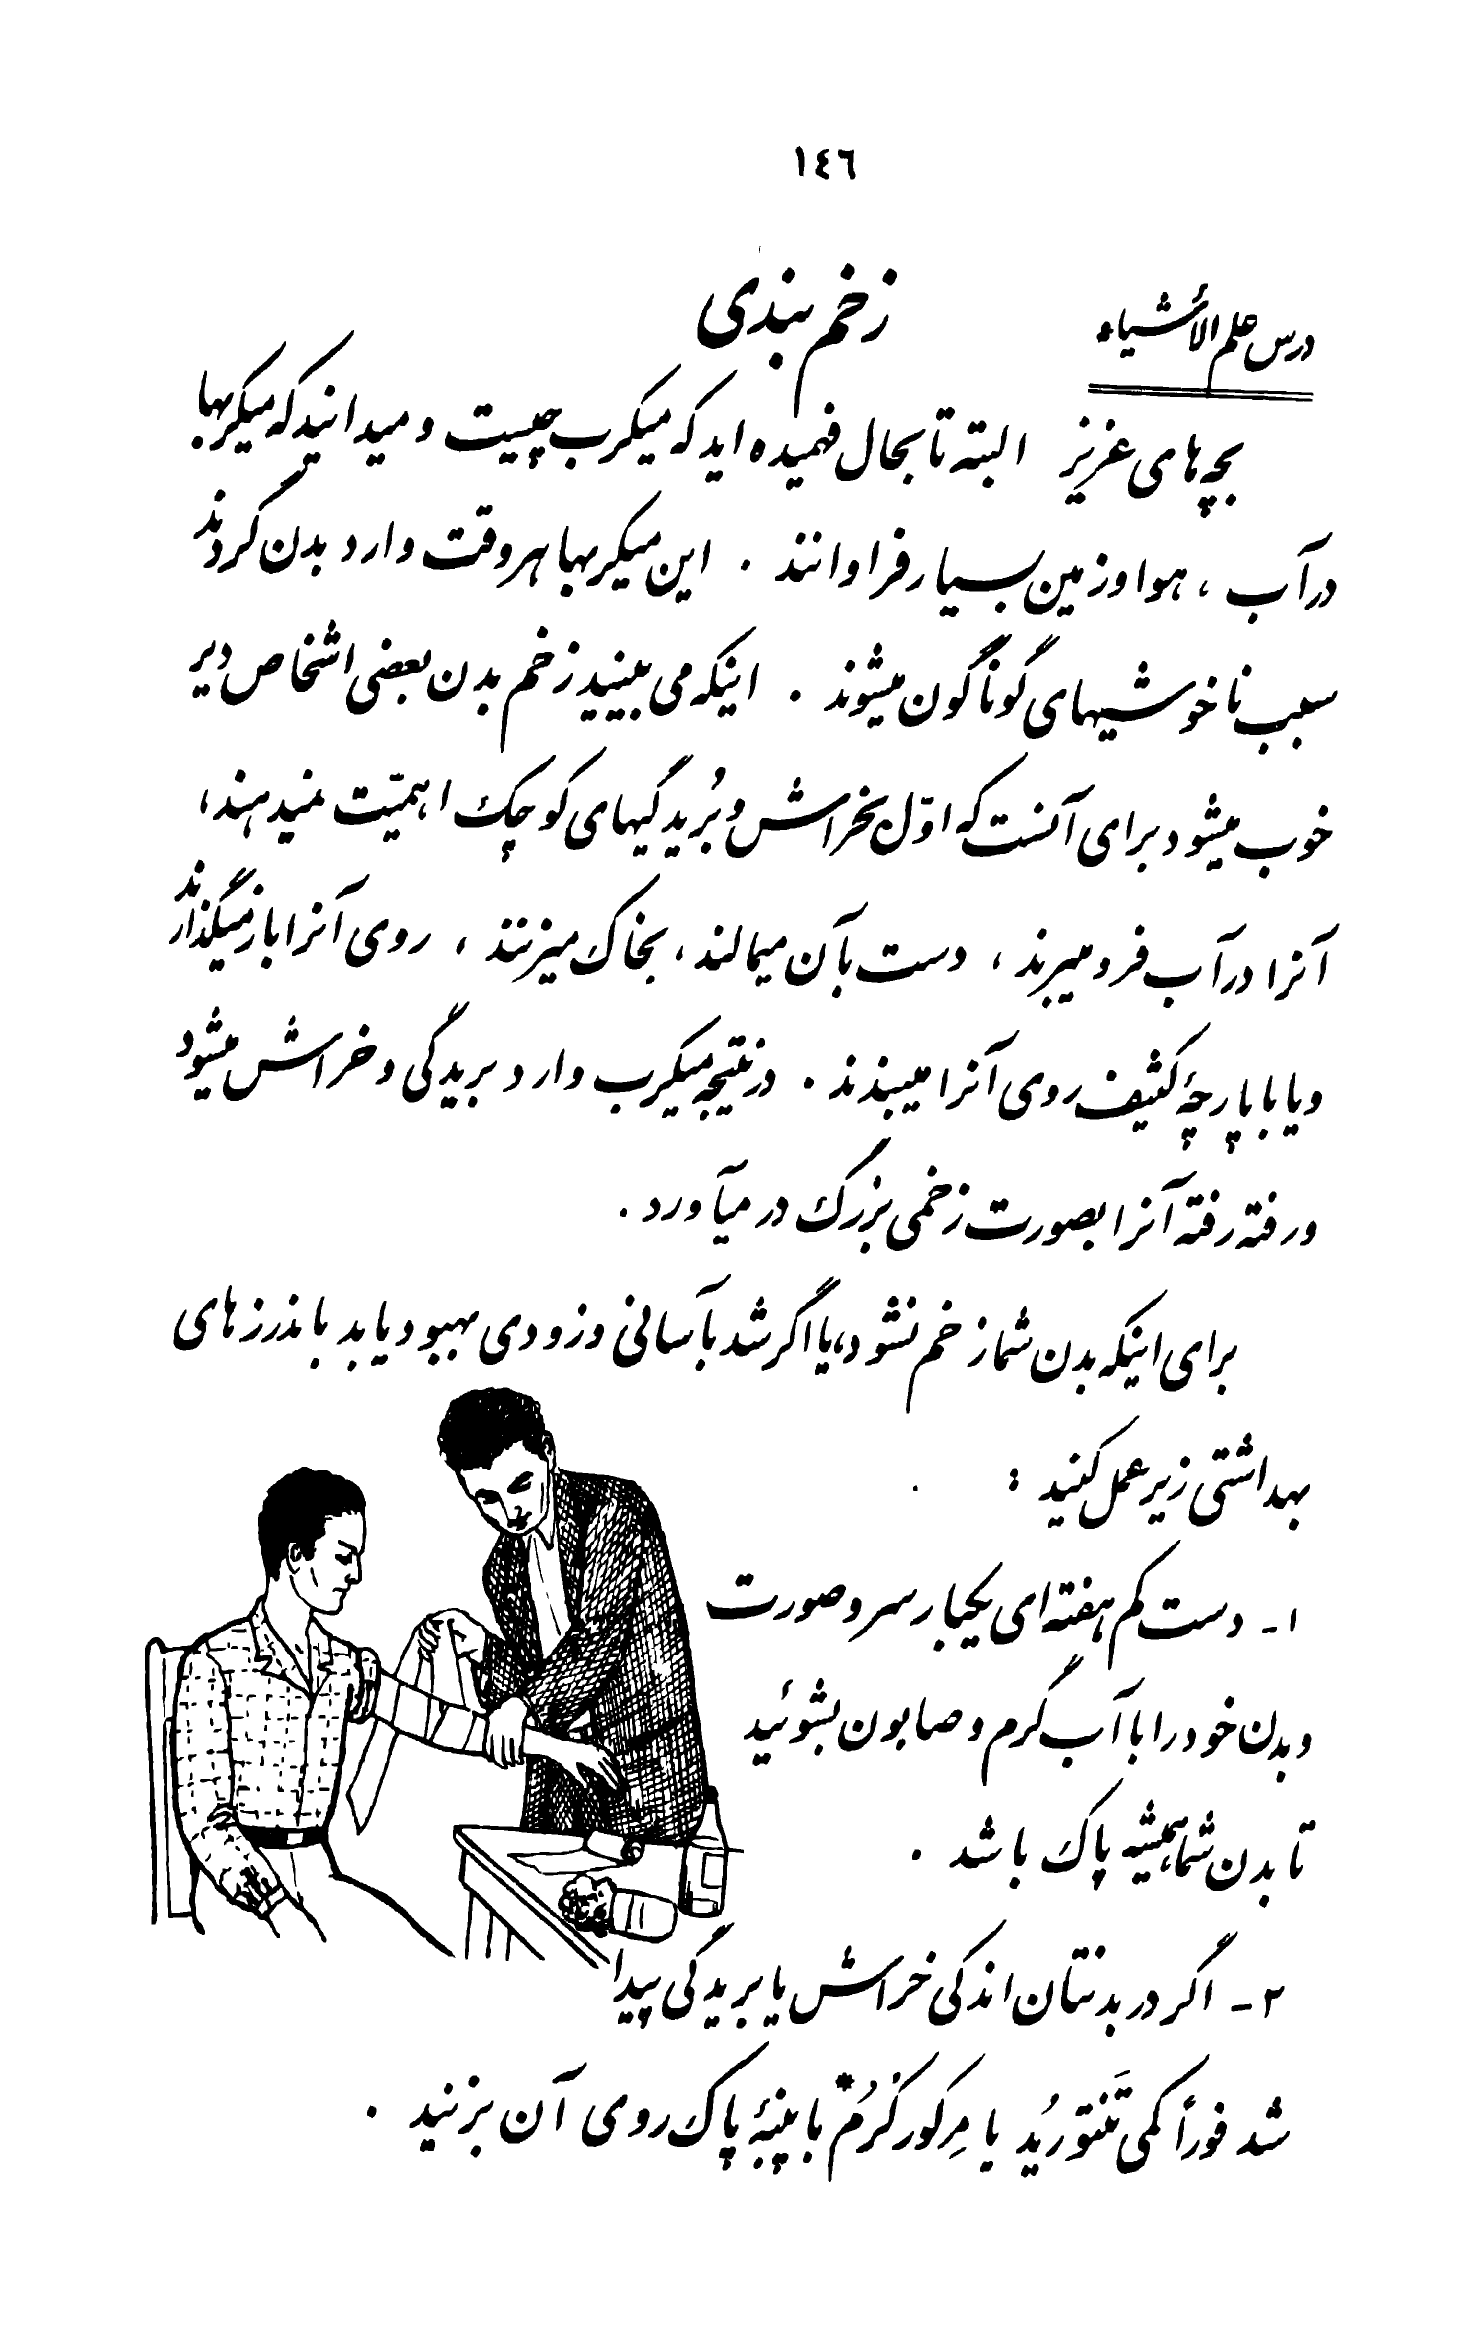 ١٤٦
درس علم الأشیاء
زخم بندی
بچه‌های عزیز البته تا بحال فهمیده‌اید که میکرب چیست و میدانید که میکربها
در آب ، هوا و زمین بسیار فراوانند . این میکربها هر وقت وارد بدن گردند
سبب ناخوشیهای گوناگون میشوند . اینکه می بینید زخم بدن بعضی اشخاص دیر
خوب میشود برای آنست که اوّل بخراش و بُریدگیهای کوچک اهمیّت نمیدهند ،
آنرا در آب فرو میبرند ، دست بآن میمالند ، بخاک میزنند ، روی آنرا باز میگذارند
و یا با پارچهٔ کثیف روی آنرا میبندند . در نتیجه میکرب وارد بریدگی و خراش میشود
و رفته رفته آنرا بصورت زخمی بزرگ در میآورد .
برای اینکه بدن شما زخم نشود ، یا اگر شد بآسانی و زودی بهبود یابد باندرزهای
بهداشتی زیر عمل کنید :
۱ـ دست کم هفته‌ای یکبار سر و صورت
و بدن خود را با آب گرم و صابون بشوئید
تا بدن شما همیشه پاک باشد .
۲ـ اگر در بدنتان اندکی خراش یا بریدگی پیدا
شد فوراً کمی تَنتورُید یا مِرکورکرُم* با پنبهٔ پاک روی آن بزنید .